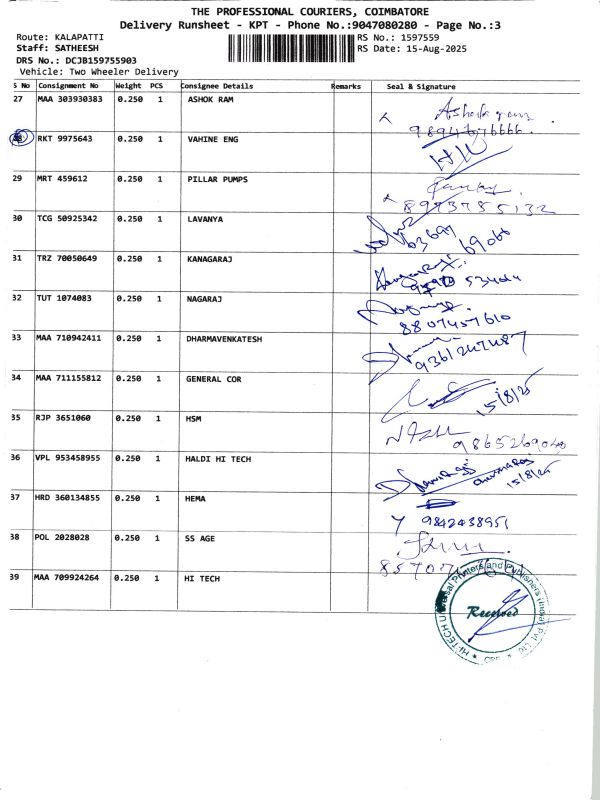 THE PROFESSIONAL COURIERS, COIMBATORE
Delivery Runsheet - KPT - Phone No.:9047080280 - Page No.:3
Route: KALAPATTI
RS No.: 1597559
Staff: SATHEESH
RS Date: 15-Aug-2025
DRS No.: DCJB159755903
Vehicle: Two Wheeler Delivery
S No Consignment No Weight PCS Consignee Details Remarks Seal & Signature
27 MAA 303930383 0.250 1 ASHOK RAM
RKT 9975643 0.250 1 VAHINE ENG
29 MRT 459612 0.250 1 PILLAR PUMPS
8993785132
30 TCG 50925342 0.250 1 LAVANYA
63691 69066
31 TRZ 70050649 0.250 1 KANAGARAJ
32 TUT 1074083 0.250 1 NAGARAJ
8807457610
33 MAA 710942411 0.250 1 DHARMAVENKATESH
9361247487
34 MAA 711155812 0.250 1 GENERAL COR
15/8/25
35 RJP 3651060 0.250 1 HSM
9865269040
36 VPL 953458955 0.250 1 HALDI HI TECH
15/8/25
37 HRD 360134855 0.250 1 HEMA
9842438951
38 POL 2028028 0.250 1 SS AGE
39 MAA 709924264 0.250 1 HI TECH
HI-TECH Universal Printers and Publishers (India) Pvt. Ltd.
Received